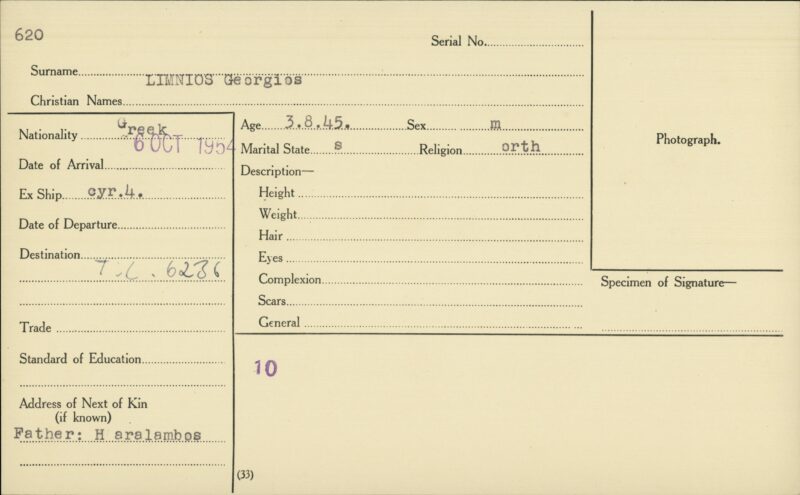 620
Serial No.
Surname LIMNIOS Georgios
Christian Names
Nationality Greek
6 OCT 1954
Date of Arrival
Ex Ship cyr.4.
Date of Departure
Destination
T.L. 6236
Trade
Standard of Education
Address of Next of Kin
(if known)
Father: H aralambos
Age 3.8.45. Sex m
Marital State s Religion orth
Description—
Height
Weight
Hair
Eyes
Complexion
Scars
General
10
(33)
Photograph.
Specimen of Signature—